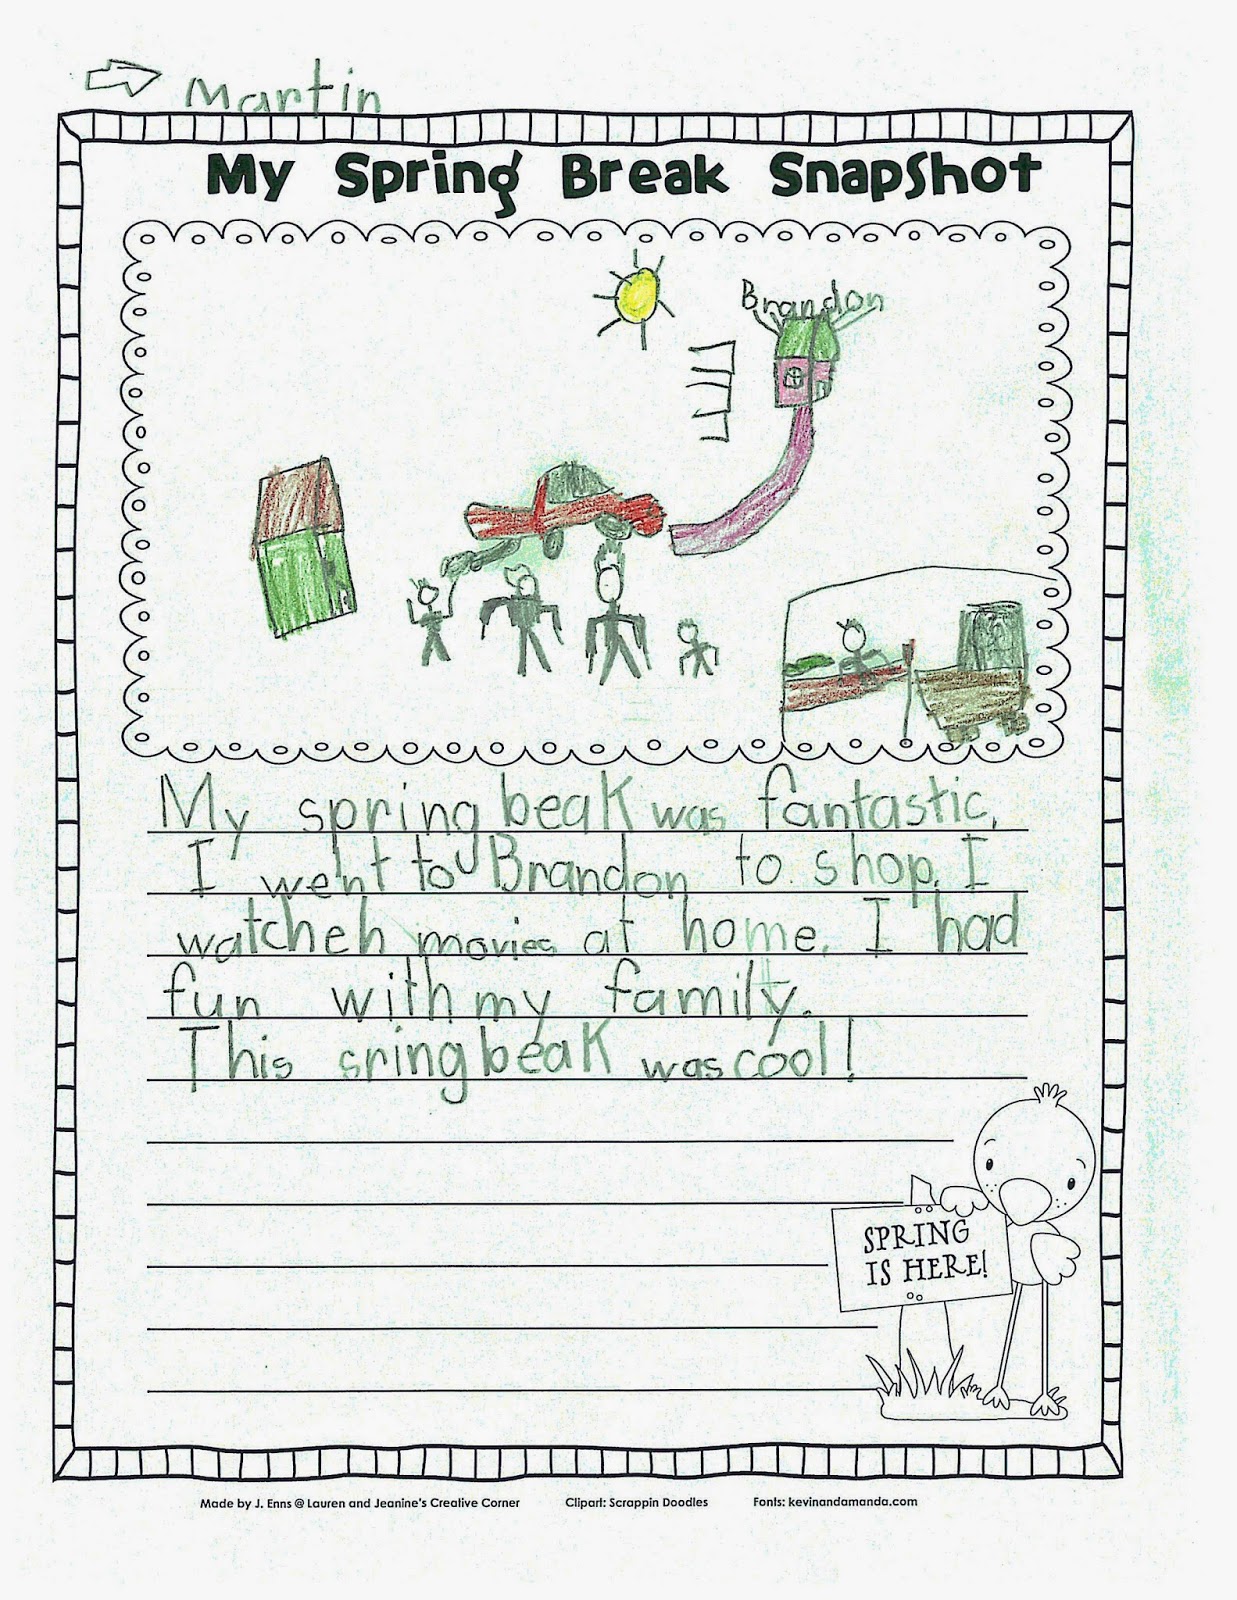 Martin
My Spring Break Snapshot
Brandon
My spring beak was fantastic.
I went to Brandon to shop. I
watcheh movies at home. I had
fun with my family.
This sring beak was cool!
SPRING
IS HERE!
Made by J. Enns @ Lauren and Jeanine's Creative Corner Clipart: Scrappin Doodles Fonts: kevinandamanda.com